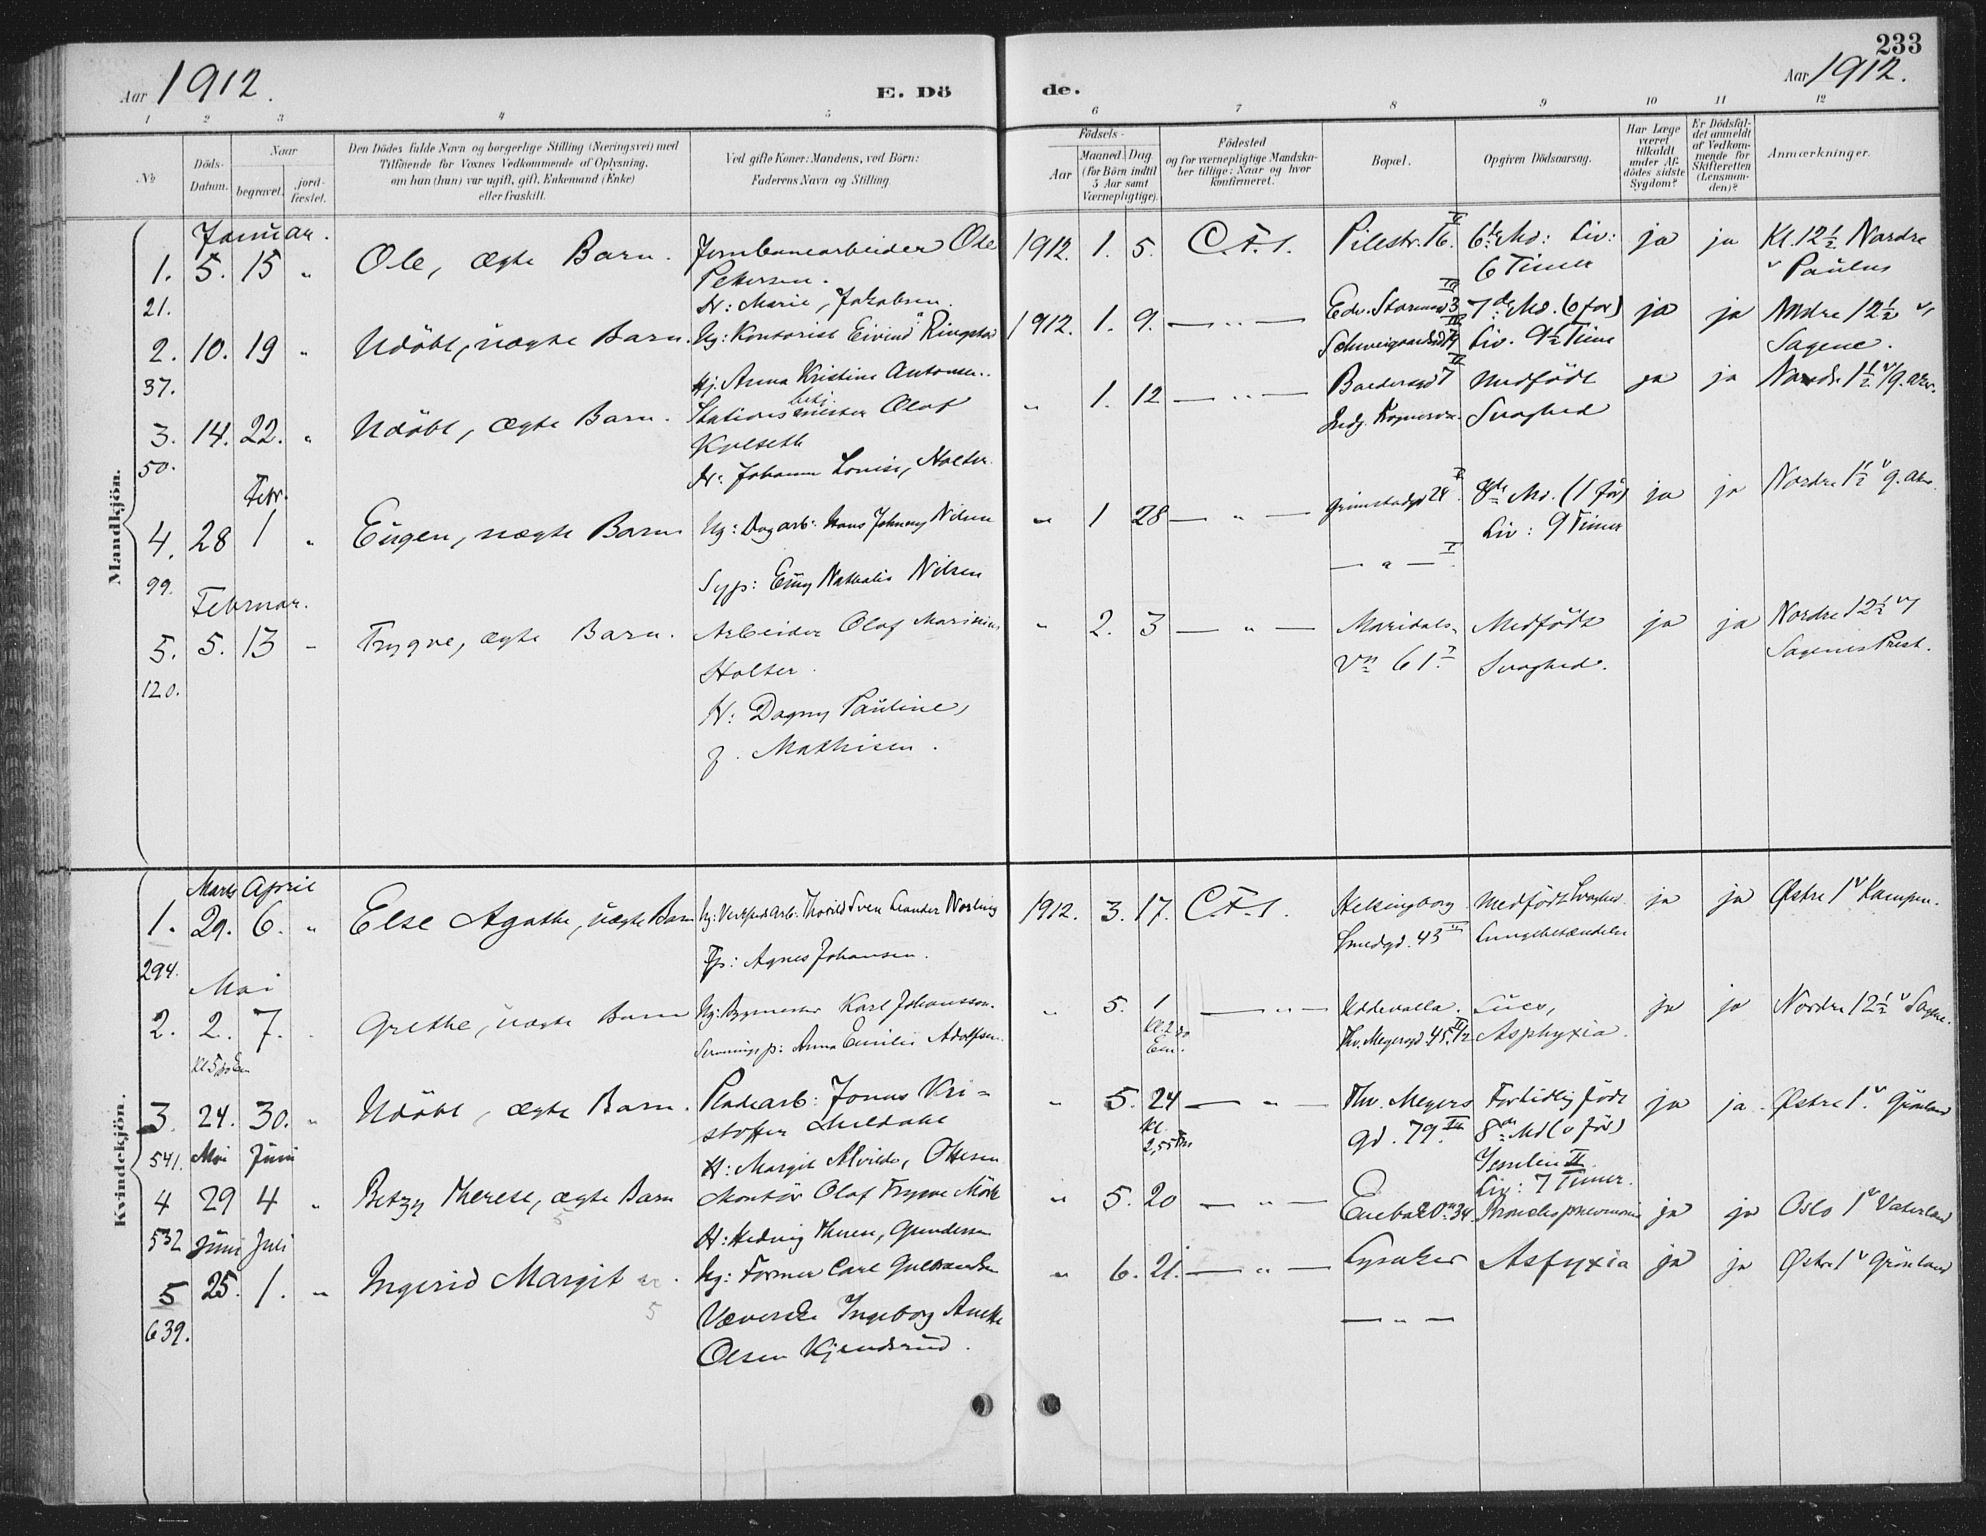 233
Aar 1912.
E. Dö
de.
Aar 1912.
1 2 3 4 5 6 7 8 9 10 11 12
No
Döds-Datum.
Naar
begravet.
jord-fæstet.
Den Dödes fulde Navn og borgerlige Stilling (Næringsvei) med
Tilföiende for Voxnes Vedkommende af Oplysning,
om han (hun) var ugift, gift, Enkemand (Enke)
eller fraskilt.
Ved gifte Koner: Mandens, ved Börn:
Faderens Navn og Stilling.
Födsels-
Aar
Maaned. Dag
(for Börn indtil
5 Aar samt
Værnepligtige).
Födested
og for værnepligtige Mandska-
ber tillige: Naar og hvor
konfirmeret.
Bopæl.
Opgiven Dödsaarsag.
Har Læge
været
tilkaldt
under Af-
dödes sidste
Sygdom?
Er Dödsfal-
det anmeldt
af Vedkom-
mende for
Skifteretten
(Lensman-
den)?
Anmærkninger.
Mandkjön.
Januar.
1. 5. 15 " Ole, ægte Barn. Jernbanearbeider Ole 1912. 1. 5. C.F.S. Pilestr. 16. 6te Md: Liv: ja ja Kl. 12½ Nordre
Petersen. 6 Timer v Paulus
21. H: Marie, Jakobsen.
2. 10. 19 " Udöbt, uægte Barn. Ug: Kontorist Eivind Ringstad 1912. 1. 9. — " — Edv. Stormsgd 3 7de Md. (0 for) ja ja Nordre 12½ v
Schweigaardsgd Liv. 9½ Time Sagene.
37. Hj. Anna Kristine Antonsen.
3. 14. 22. " Udöbt, ægte Barn. Stationsbetj. mester Olaf " 1. 12 — " — 7 Medfödt ja ja Nordre 1½ v
Svaghed
50. H: Johanne Lovise, Holter.
Febr.
4. 28 1 " Eugen, uægte Barn Ug: Dagarb: Hans Johnny Nilsen " 1 28 — " — Grimstadgd 24 8de Md. (1 för) ja ja Nordre 1½ v
Liv: 9 Timer
99. Syp: Emy Nathalie Nilsen — " —
Februar.
5. 5. 13 " Trygve, ægte Barn. Arbeider Olaf Marinius " 2. 3 — " — Maridals- Medfödt ja ja Nordre 12½ v
120. Holter. vn 61 Svaghed. Sagenes Prest.
H: Dagny Pauline,
f. Mathisen.
Kvindekjön.
Marts April
1. 29. 6. " Else Agathe, uægte Barn Ug: Verkstedarb: Thorild Sven Leander Norling 1912. 3. 17. C.F.S. Helsingborg Medfödt Svaghed. ja ja Østre 1 v Kampen.
Smedgd. 43 Lungebetændelse
294. Tjp: Agnes Johansen.
Mai
2. 2. 7. " Grethe, uægte Barn Ug: Bygmester Karl Johansson. " 5. 1 — " — Uddevalla. Lues, ja ja Nordre 12½ v Sagene.
Kl 5 Anna Emilie Adolfsen. Em. Thv. Meyersgd. 45 Asphyxia.
3. 24. 30. " Udöbt, ægte Barn. Pladearb: Jonas Kri- " 5. 24 — " — Thv. Meyers Fortidlig födt ja ja Østre 1 v Grönland
stoffer kl. gd. 79 8de Md (0 för)
541. H: Margit Alvilde, Ottesen 2,55 Liv: 7 Timer.
Mai Juni
4 29 4 " Betzy Therese, ægte Barn Montör Olaf Trygve Mörk " 5. 20 — " — Eneba 20 n 34. Bronchopneumoni ja ja Oslo 1 v Vaterland
532 H: Hedvig Therese, Gundersen
Juni Juli
5 25. 1. " Ingerid Margit Ug: Former Carl Gulbrandsen " 6. 21. — " — Lysaker Asfyxia ja ja Østre 1 v Grönland
639. 5 Væverske Ingeborg Anette — " —
Olsen Kjendsrud.